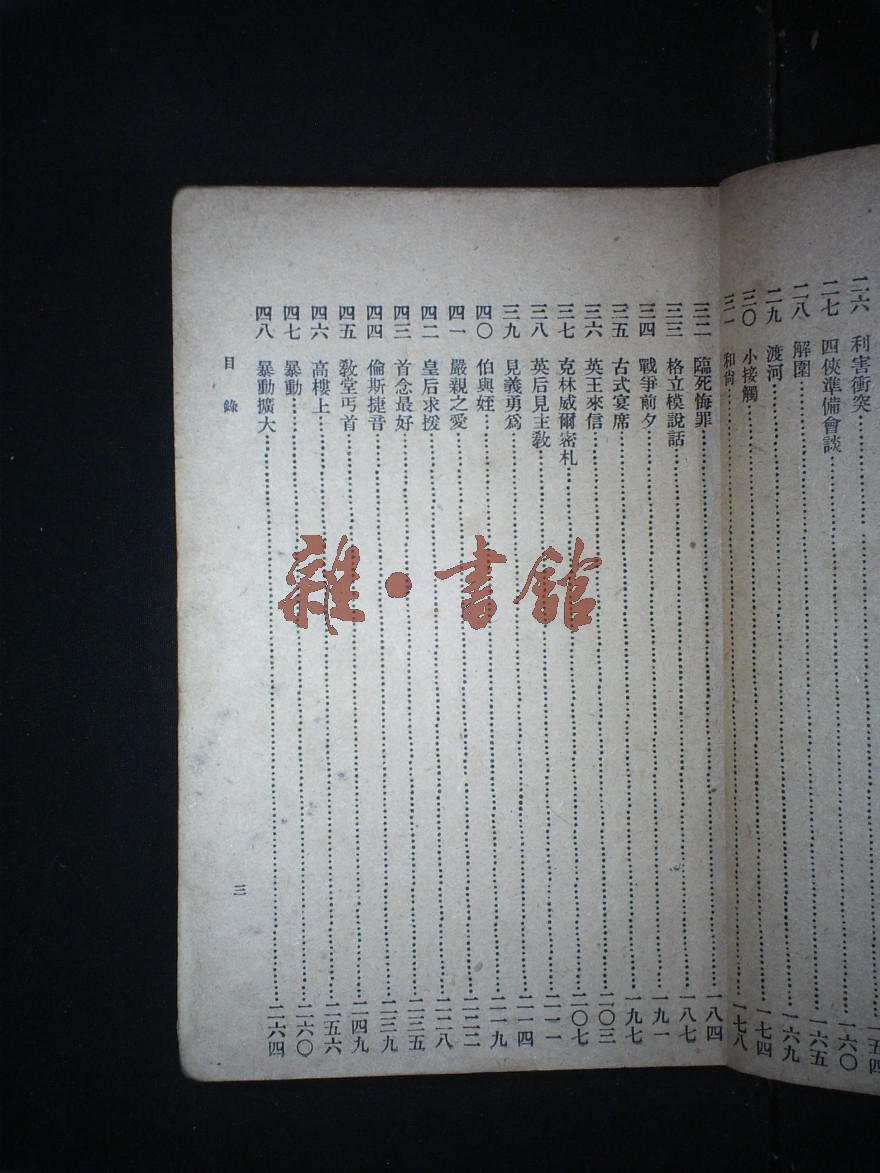 二六 利害衝突……一五四
二七 四俠準備會談……一六〇
二八 解圍……一六五
二九 渡河……一六九
三〇 小接觸……一七四
三一 和尚……一七八
三二 臨死悔罪……一八四
三三 格立模說話……一八七
三四 戰爭前夕……一九一
三五 古式宴席……一九七
三六 英王來信……二〇三
三七 克林威爾密札……二〇七
三八 英后見主教……二一一
三九 見義勇爲……二一四
四〇 伯與姪……二一九
四一 嚴親之愛……二二二
四二 皇后求援……二二八
四三 首念最好……二三五
四四 倫斯捷音……二三九
四五 教堂丐首……二四九
四六 高樓上……二五六
四七 暴動……二六〇
四八 暴動擴大……二六四
目錄
三
雜·書館